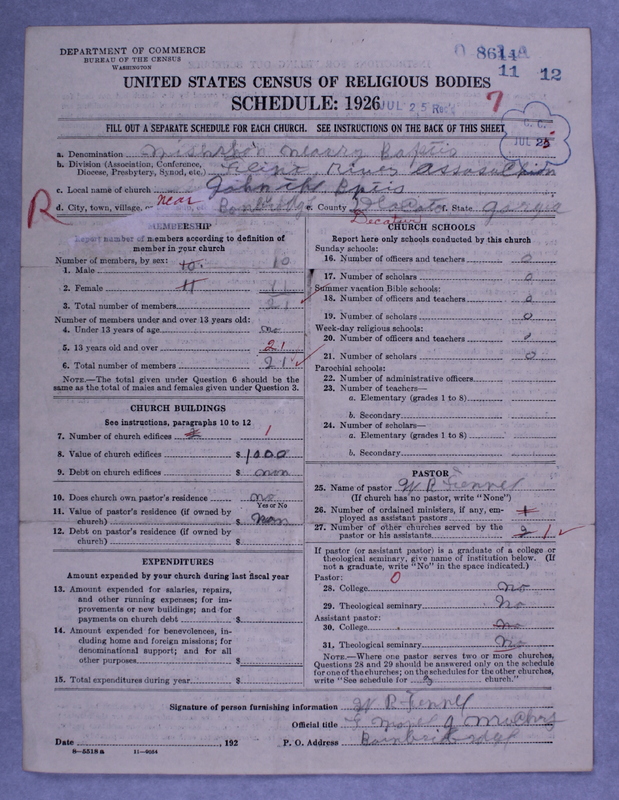 DEPARTMENT OF COMMERCE
BUREAU OF THE CENSUS
WASHINGTON
11 12
UNITED STATES CENSUS OF RELIGIOUS BODIES
SCHEDULE: 1926
JUL 25 Rec'd
7
FILL OUT A SEPARATE SCHEDULE FOR EACH CHURCH. SEE INSTRUCTIONS ON THE BACK OF THIS SHEET
C. C.
JUL 25
a. Denomination
b. Division (Association, Conference, Diocese, Presbytery, Synod, etc.) river
c. Local name of church
R
d. City, town, village, near
e. County Decatur f. State
MEMBERSHIP
Report number of members according to definition of member in your church
Number of members, by sex:
1. Male 10. 10
2. Female 11 11
3. Total number of members 21
Number of members under and over 13 years old:
4. Under 13 years of age no
5. 13 years old and over 21
6. Total number of members 21
NOTE.—The total given under Question 6 should be the same as the total of males and females given under Question 3.
CHURCH BUILDINGS
See instructions, paragraphs 10 to 12
7. Number of church edifices 1
8. Value of church edifices $ 1000
9. Debt on church edifices $ non
10. Does church own pastor's residence no
Yes or No
11. Value of pastor's residence (if owned by church) $ non
12. Debt on pastor's residence (if owned by church) $
EXPENDITURES
Amount expended by your church during last fiscal year
13. Amount expended for salaries, repairs, and other running expenses; for improvements or new buildings; and for payments on church debt $
14. Amount expended for benevolences, including home and foreign missions; for denominational support; and for all other purposes $
15. Total expenditures during year $
CHURCH SCHOOLS
Report here only schools conducted by this church
Sunday schools:
16. Number of officers and teachers 0
17. Number of scholars 0
Summer vacation Bible schools:
18. Number of officers and teachers 0
19. Number of scholars 0
Week-day religious schools:
20. Number of officers and teachers 0
21. Number of scholars 0
Parochial schools:
22. Number of administrative officers
23. Number of teachers—
a. Elementary (grades 1 to 8)
b. Secondary
24. Number of scholars—
a. Elementary (grades 1 to 8)
b. Secondary
PASTOR
25. Name of pastor W R Fennel
(If church has no pastor, write "None")
26. Number of ordained ministers, if any, employed as assistant pastors 1
27. Number of other churches served by the pastor or his assistants 2 1
If pastor (or assistant pastor) is a graduate of a college or theological seminary, give name of institution below. (If not a graduate, write "No" in the space indicated.)
Pastor: 0
28. College No
29. Theological seminary No
Assistant pastor:
30. College No
31. Theological seminary No
NOTE.—Where one pastor serves two or more churches, Questions 28 and 29 should be answered only on the schedule for one of the churches; on the schedules for the other churches, write "See schedule for church."
Signature of person furnishing information W R Fennel
Official title
Date , 192 P. O. Address
8—5518 a 11—9054